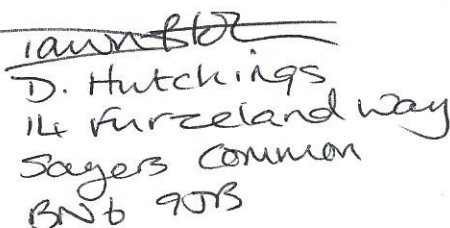 D. Hutchings
14 Furzeland Way
Sayers Common
BN6 9JB